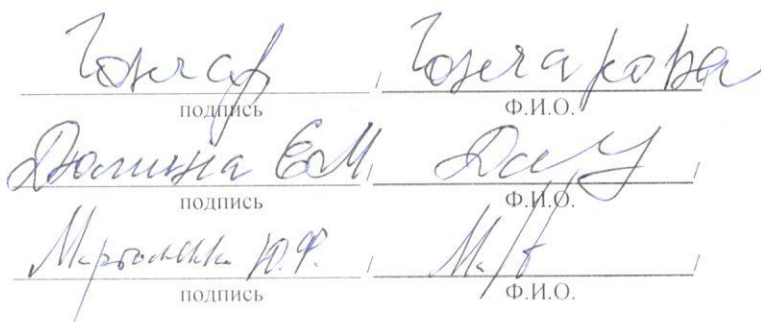 Гончар / Гончарова /
подпись Ф.И.О.
Долина Е.М. / /
подпись Ф.И.О.
Ю.Ф. / /
подпись Ф.И.О.